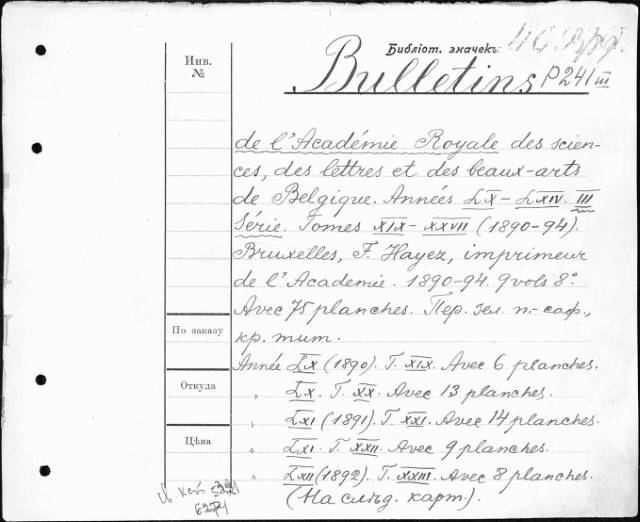 Библіот. значекъ:
Bulletins P241 III
Инв.
№
de l'Académie Royale des scien-
ces, des lettres et des beaux-arts
de Belgique. Années LX–LXIV. III
Série. Tomes XIX–XXVII (1890-94).
Bruxelles, F. Hayez, imprimeur
de l'Academie. 1890-94. 9 vols 8°.
Avec 75 planches. Пер. зел. п.-саф.,
кр. тит.
По заказу
Année LX (1890). T. XIX. Avec 6 planches.
Откуда
„ LX. T. XX. Avec 13 planches.
„ LXI (1891). T. XXI. Avec 14 planches.
Цѣна
„ LXI. T. XXII. Avec 9 planches.
„ LXII (1892). T. XXIII. Avec 8 planches.
(На слѣд. карт.).